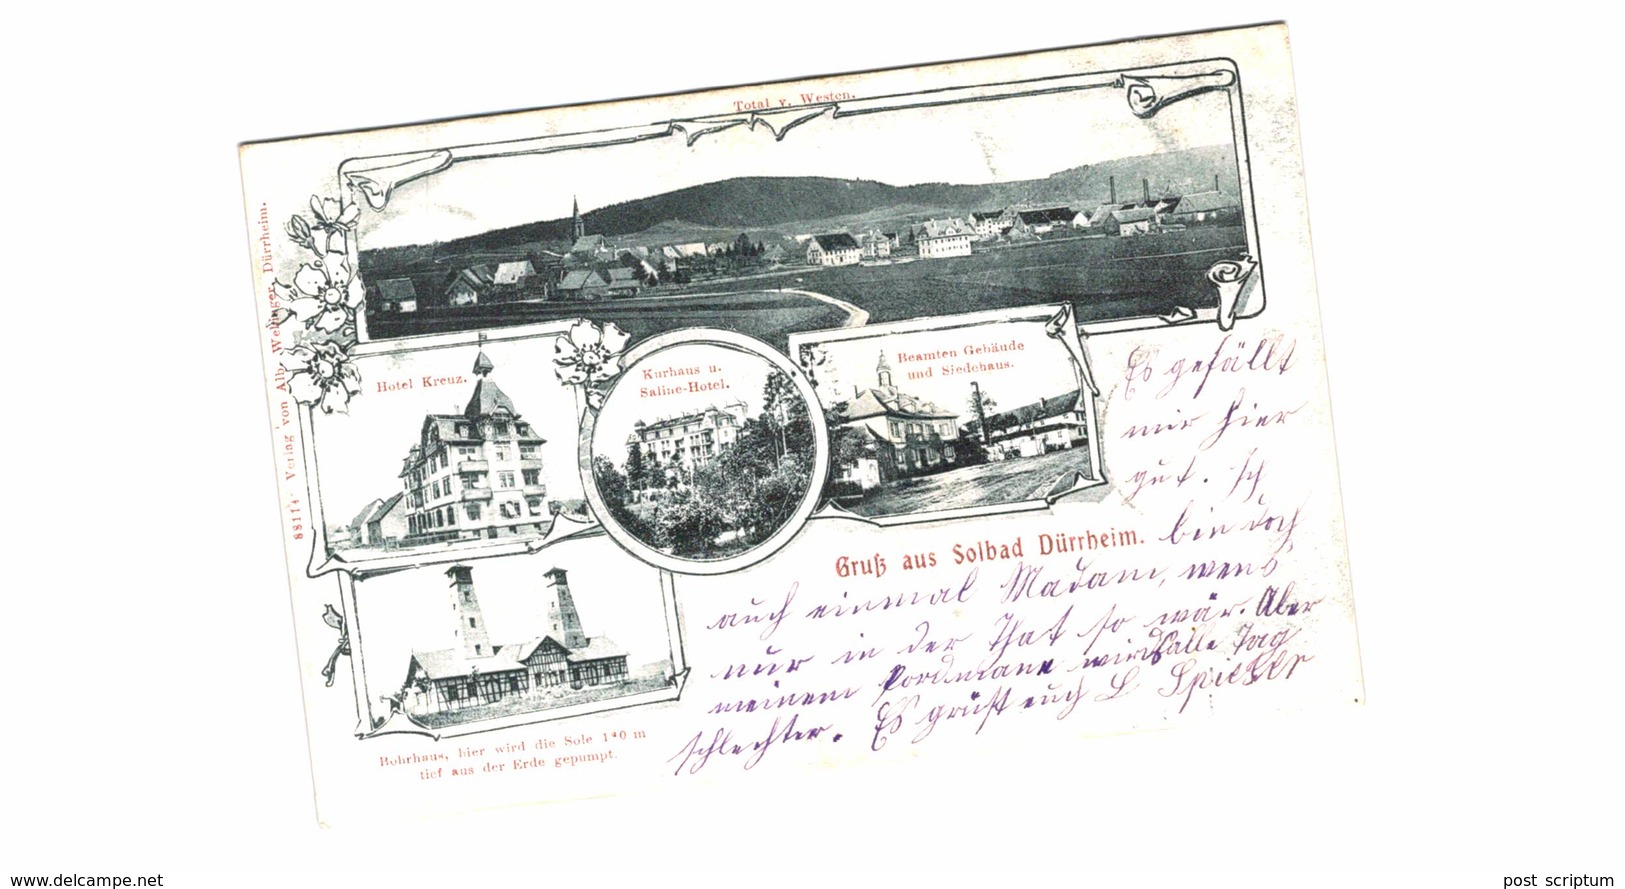 Total v. Westen.
88114 Verlag von Alb. Wehinger, Dürrheim.
Hotel Kreuz.
Kurhaus u.
Saline-Hotel.
Beamten Gebäude
und Siedehaus.
Bohrhaus, hier wird die Sole 140 m
tief aus der Erde gepumpt.
Gruß aus Solbad Dürrheim.
Es gefällt
mir hier
gut. Ich
bin doch
auch einmal Madam, wens
nur in der That so wär. Aber
meinem wird alle Tag
schlechter. Es grüßt euch L
www.delcampe.net
post scriptum